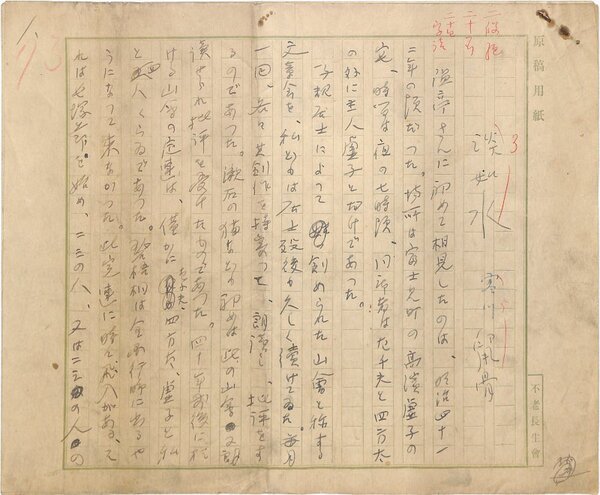 二段抜
二十一行
原稿用紙
淡如水
寒川鼠骨
温亭さんに初めて相見したのは、明治四十一
二年の頃だつた。場所は富士見町の高濱虚子の
宅、時間は夜の七時頃、同席者は左千夫と四方太
の外に主人虚子とだけであつた。
子規居士によつて創められた山會と称する
文章会を、私どもは居士歿後か久しく續けてゐた。毎月
一回、各々其創作を持寄つて、朗読し、批評をす
るのであつた。漱石の猫なども初めは此の山會で朗
讀せられ批評を受けたものであつた。四十年前後に於
ける山會の連連は、僅かに左千夫四方太、虚子と私
と四人くらゐであつた。碧梧桐は全国行脚に出るや
うになつて来なかつた。此定連に時々飛入がある、そ
れは七塚芥を始め、二三の人、又は二三の人の
不老長生會